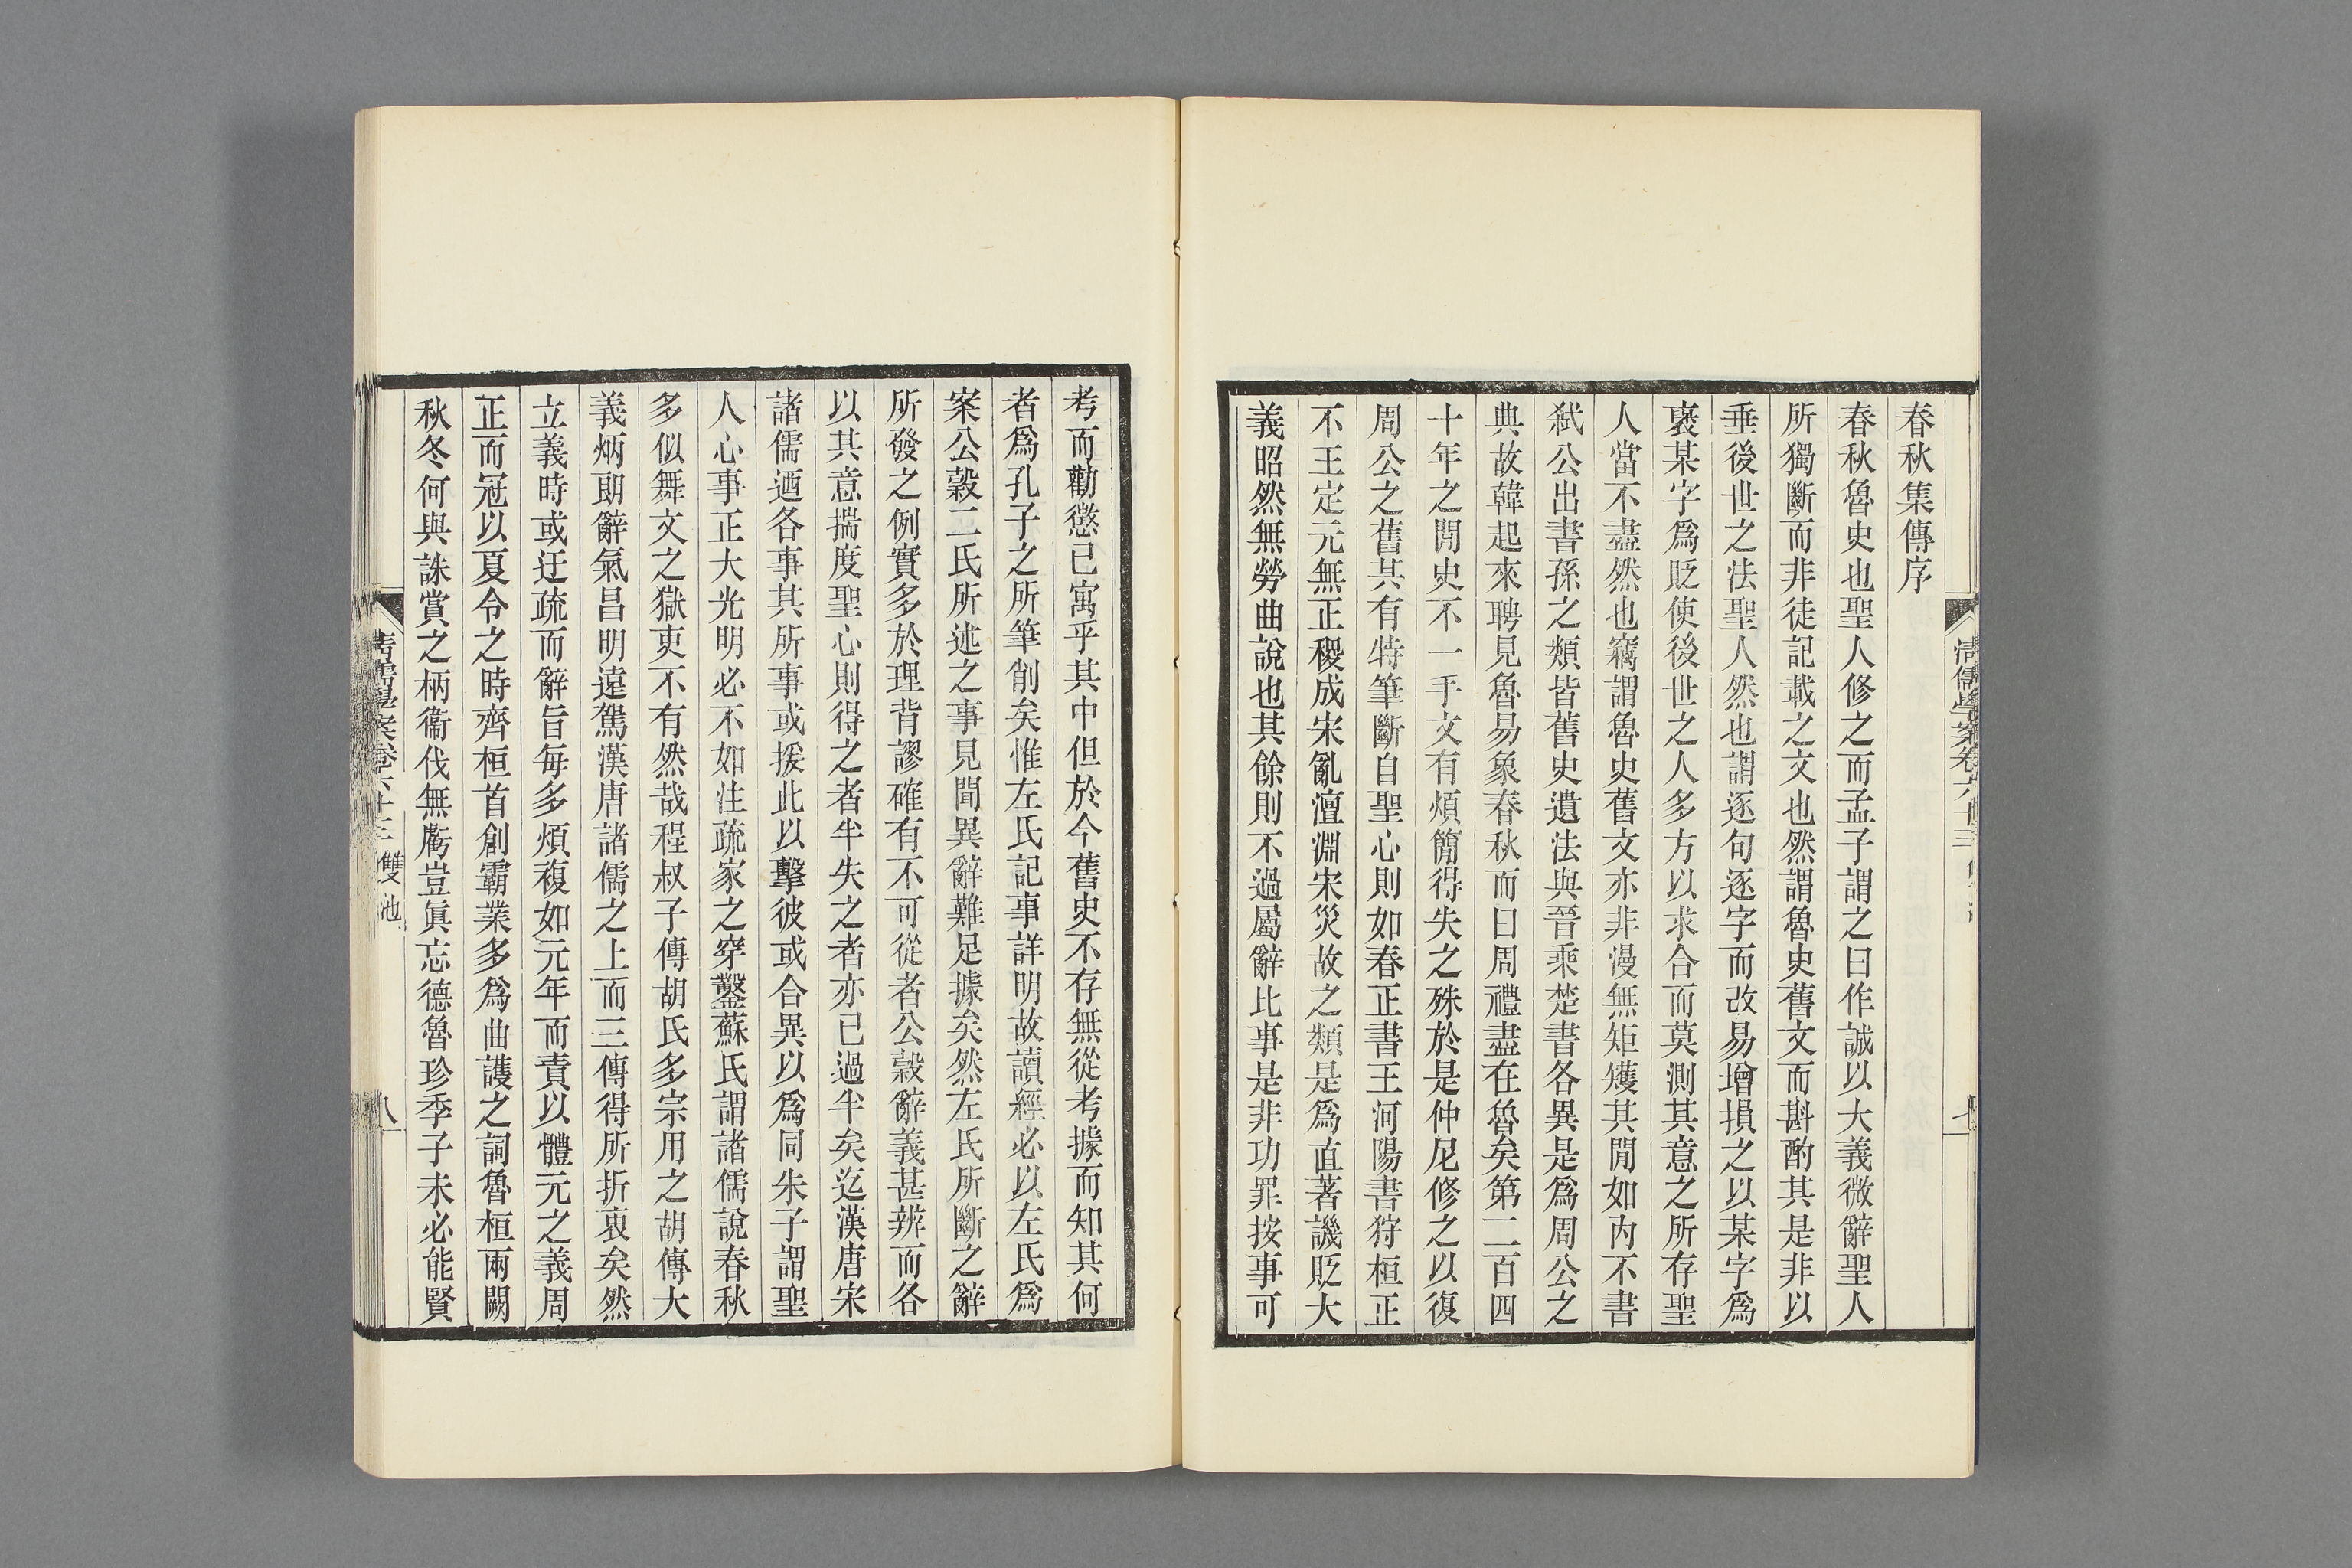 春秋集傳序
春秋魯史也聖人修之而孟子謂之曰作誠以大義微辭聖人
所獨斷而非徒記載之文也然謂魯史舊文而斟酌其是非以
垂後世之法聖人然也謂逐句逐字而改易增損之以某字爲
襃某字爲貶使後世之人多方以求合而莫測其意之所存聖
人當不盡然也竊謂魯史舊文亦非漫無矩矱其閒如內不書
弑公出書孫之類皆舊史遺法與晉乘楚書各異是爲周公之
典故韓起來聘見魯易象春秋而曰周禮盡在魯矣第二百四
十年之閒史不一手文有煩簡得失之殊於是仲尼修之以復
周公之舊其有特筆斷自聖心則如春正書王河陽書狩桓正
不王定元無正稷成宋亂澶淵宋災故之類是爲直著譏貶大
義昭然無勞曲說也其餘則不過屬辭比事是非功罪按事可
考而勸懲已寓乎其中但於今舊史不存無從考據而知其何
者爲孔子之所筆削矣惟左氏記事詳明故讀經必以左氏爲
案公穀二氏所述之事見聞異辭難足據矣然左氏所斷之辭
所發之例實多於理背謬確有不可從者公穀辭義甚辨而各
以其意揣度聖心則得之者半失之者亦已過半矣迄漢唐宋
諸儒迺各事其所事或援此以擊彼或合異以爲同朱子謂聖
人心事正大光明必不如注疏家之穿鑿蘇氏謂諸儒說春秋
多似舞文之獄吏不有然哉程叔子傳胡氏多宗用之胡傳大
義炳朗辭氣昌明遠駕漢唐諸儒之上而三傳得所折衷矣然
立義時或迂疏而辭旨每多煩複如元年而責以體元之義周
正而冠以夏令之時齊桓首創霸業多爲曲護之詞魯桓兩闕
秋冬何與誅賞之柄衞伐無虧豈眞忘德魯珍季子未必能賢
清儒學案卷六十三 雙池
八
清儒學案卷六十三
七